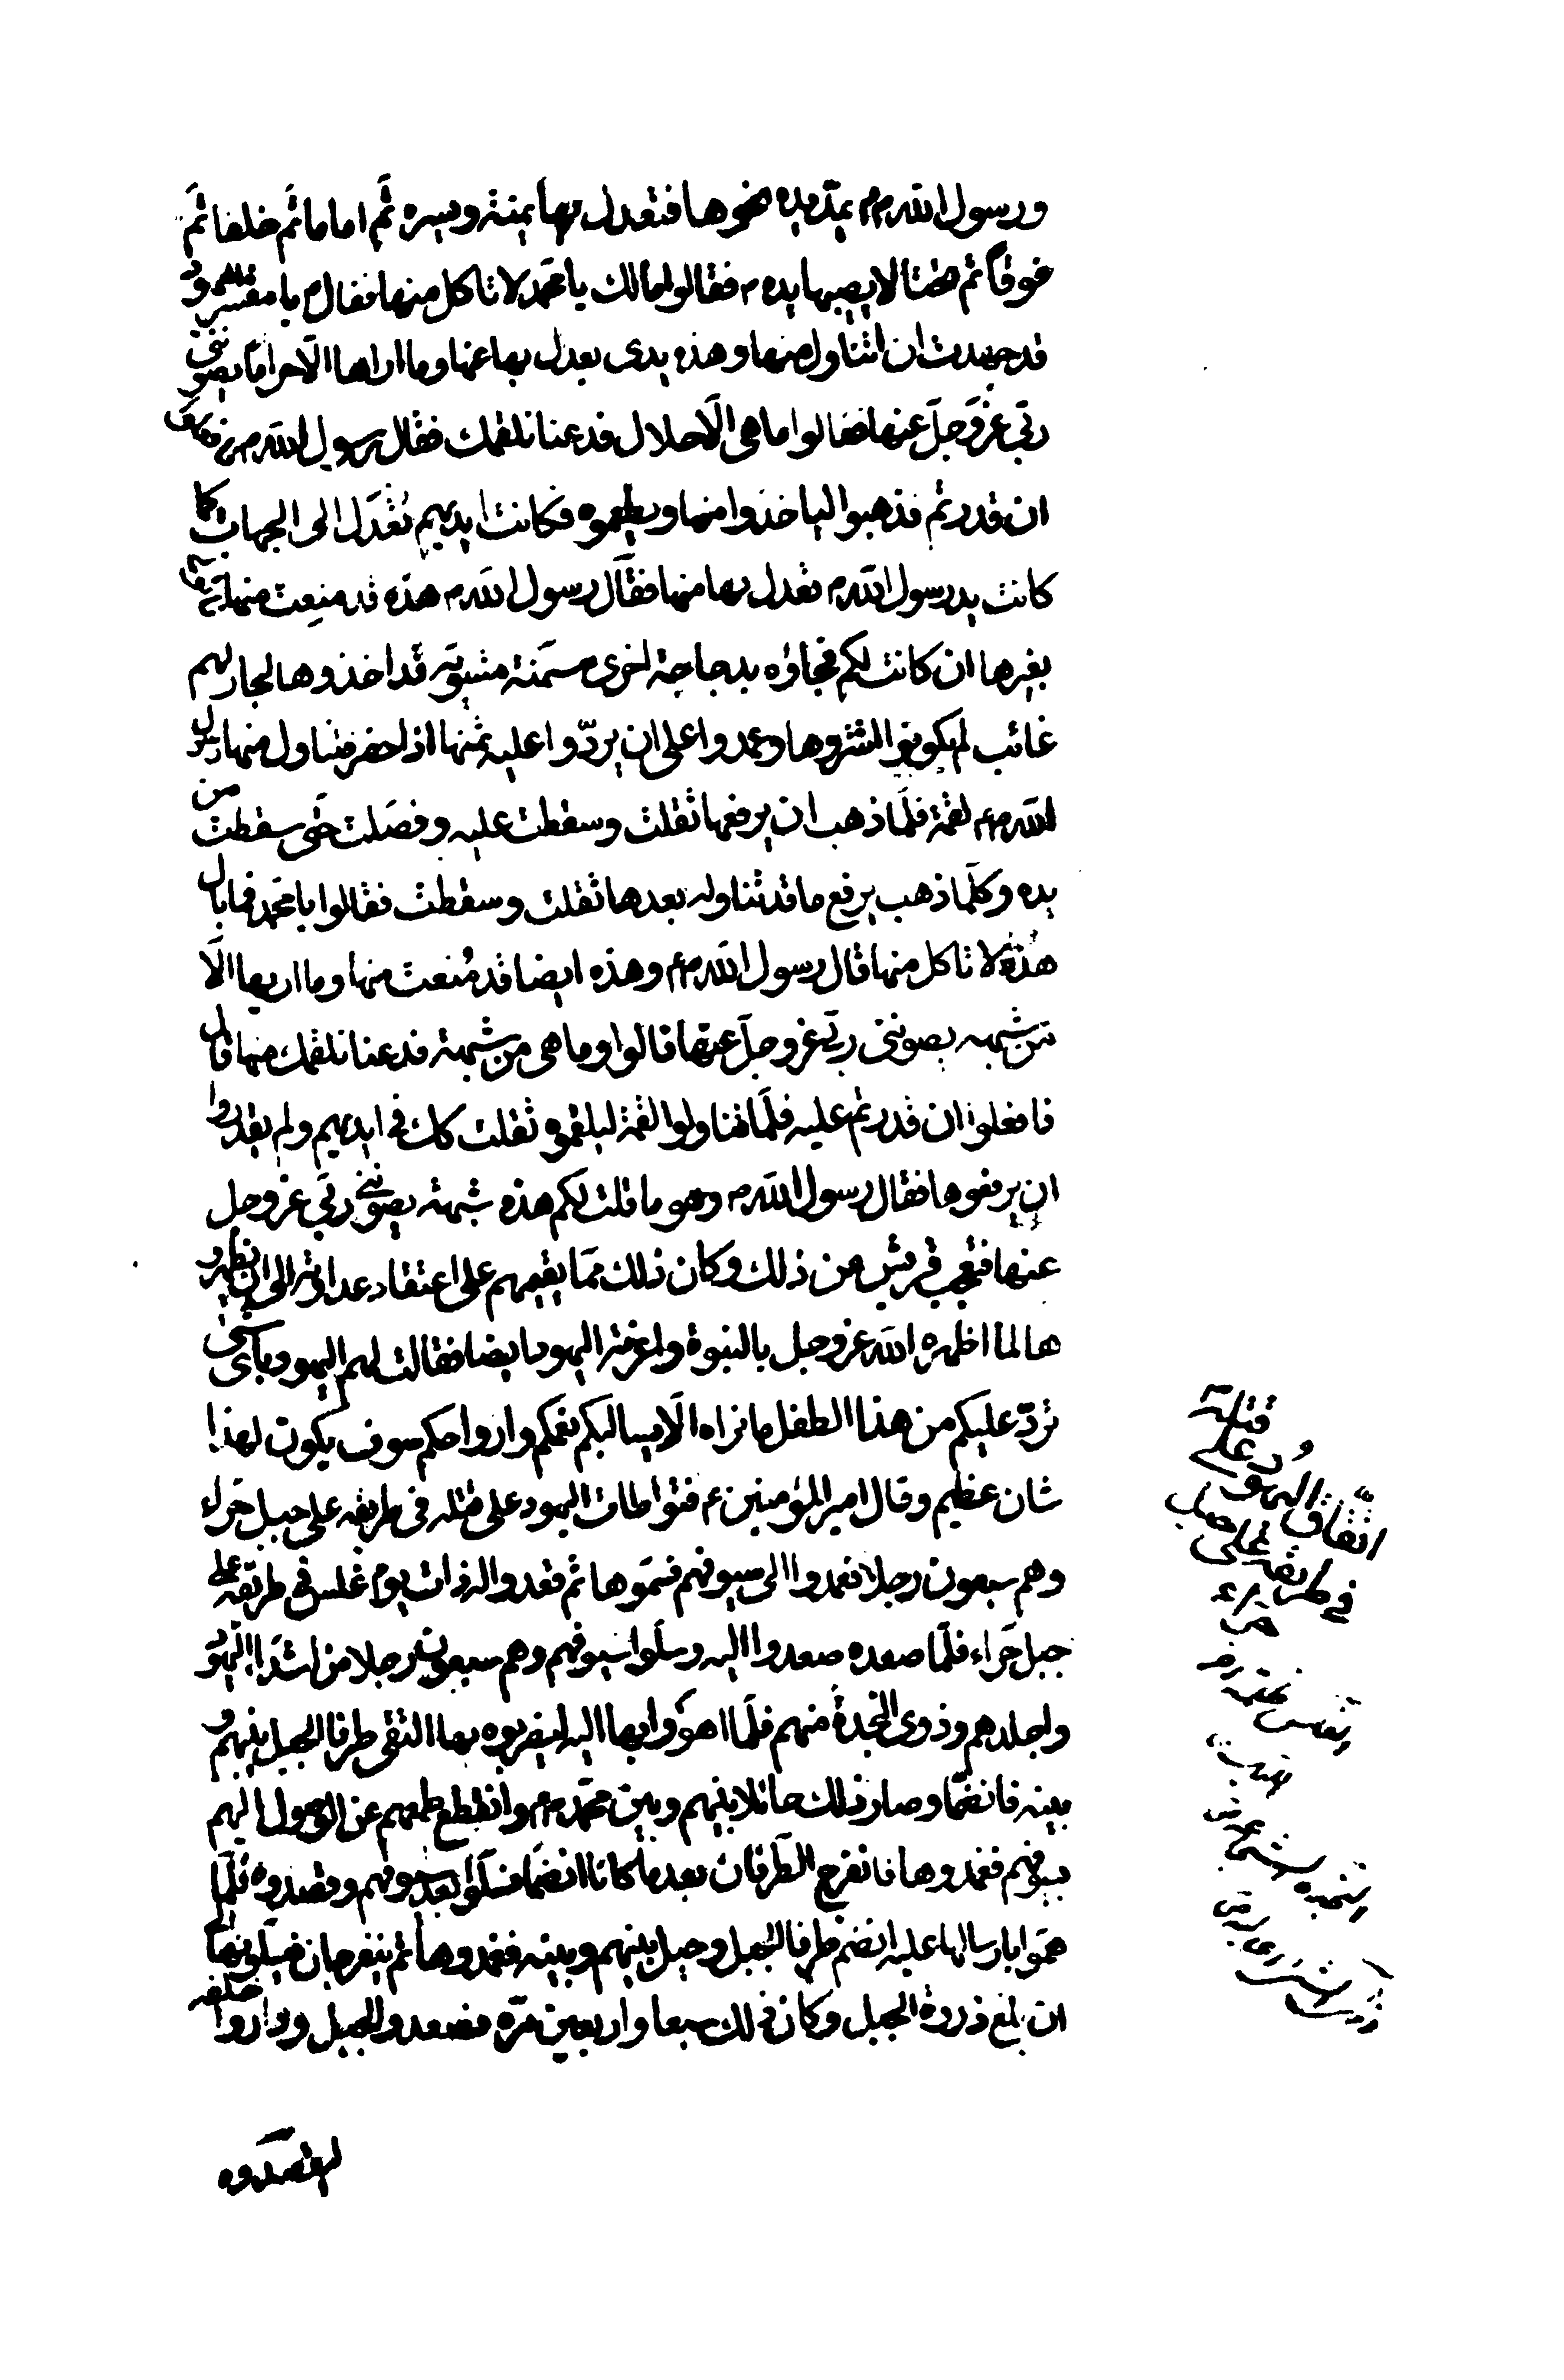 ورسول الله ص م يمدّ يده نحوها فتعدل بها يمنة ويسره ثمّ اماما ثمّ خلفا ثمّ
فوقا ثم تحتا لا يصيبها يده م فقالوا مالك يا محمد لا تاكل منها فقال م يا معشر اليهود
قد جهدت ان اتناول منها وهذه يدى يعدل بها عنها وما اراها الّا حراما يصوننى
ربّى عزّ وجلّ عنها فقالوا ما هى الّا حلال فدعنا نلقمك فقال رسول الله م
ان قدرتم فذهبوا لياخذوا منها ويطعموه فكانت ايديهم تُعْدَل الى الجهات كما
كانت يد رسول الله م تعدل بها منها فقال رسول الله م هذه قد منِعت منها
بغيرها ان كانت لكم فجاؤه بدجاجة اخرى مسمّنة مشويّة قد اخذوها لجار لهم
غائب لم يكونوا اشتروها وعمدوا على ان يردّوا عليه ثمنها اذا حضر فتناول منها رسول
الله م لقمة فلمّا ذهب ان يرفعها ثقلت وسقطت عليه وفصَلت حتّى سقطت من
يده وكلّما ذهب يرفع ما قد تناوله بعدها ثقلت وسقطت فقالوا يا محمد فما بال
هذه لا تاكل منها قال رسول الله م وهذه ايضا قد مُنعت منها وما اريها الّا
من شبهه يصوننى ربّى عز وجلّ عنها قالوا وما هى من شبهة فدعنا نلقمك منها قال
فافعلوا ان قدرتم عليه فلمّا تناولوا لقمة ليلقموه ثقلت كذلك فى ايديهم ولم يقدروا
ان يرفعوها فقال رسول الله م وهو ما قلت لكم هذه شبهة يصوننى ربّى عز وجل
عنها فتعجب قريش من ذلك وكان ذلك ممّا يقيمهم على اعتقاد عداوته الى ان اظهرو
ها لما اظهره الله عز وجل بالنبوة واغرته اليهود ايضا فقالت لهم اليهود باى شئ
تردّ عليكم من هذا الطفل ما نراه الّا يسالبكم نعمكم وارواحكم سوف يكون لهذا
شان عظيم وقال امير المؤمنين ع فتواطات اليهود على قتله فى طريقه على جبل حَراء
وهم سبعون رجلا فعمدوا الى سيوفهم فسمّوها ثم قعدوا له ذات يوم غلس فى طريقه على
جبل حَراء فلمّا صعده صعدوا اليه وسلّوا سيوفهم وهم سبعون رجلا من اشدّاء اليهود
واجلدهم وذوى النجدة منهم فلمّا اهوَوا بها اليه ليضربوه بها التقى طرفا الجبل بينهم و
بينه فانضمّا وصار ذلك حائلا بينهم وبين محمّد م وانقطع طمعهم عن الوصول اليهم
بسيوفهم فغمدوها فانفرج الطّرفان بعد ما كانا انضمّا فسلّوا بعد سيوفهم وقصدوه فلمّا
همّوا بارسالها عليه انضم طرفا الجبل وحيل بينهم وبينه فغمدوها ثم ينفرجان فيسلّونها الى
ان بلغ ذروة الجبل وكان ذلك سبعا واربعين مرّة فصعدوا الجبل وداروا خلفه
ليقصدوه
اتّفاق اليهود على قتله
فى طريقه على جبل
حراء